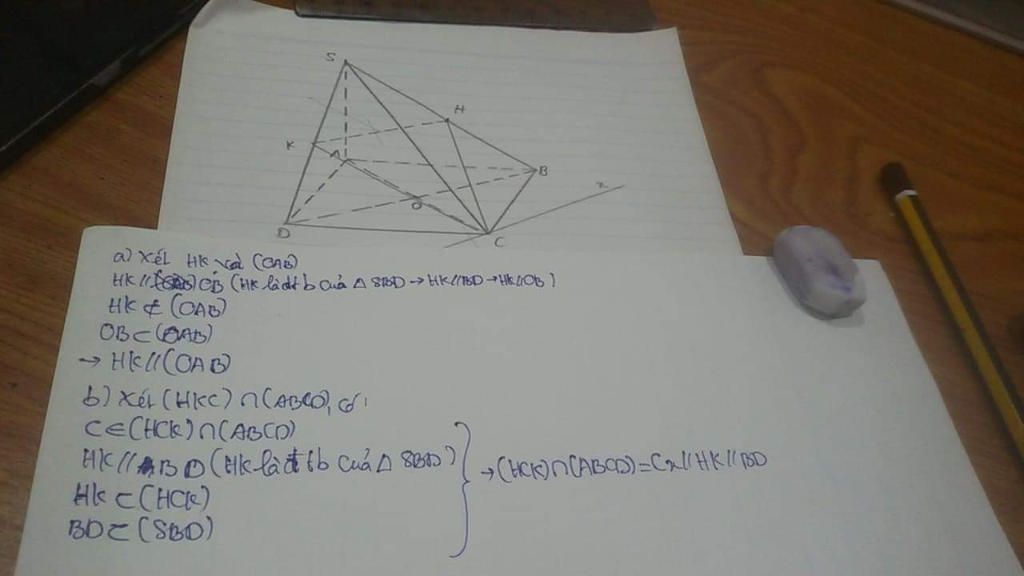 S
H
K
A
B
x
O
D
C
a) Xét HK và (OAB)
HK // OB (HK là đtb của △ SBD → HK//BD → HK//OB)
HK ⊄ (OAB)
OB ⊂ (OAB)
→ HK // (OAB)
b) Xét (HKC) ∩ (ABCD) có:
C ∈ (HCK) ∩ (ABCD)
HK // BD (HK là đtb của △ SBD)
HK ⊂ (HCK)
→ (HCK) ∩ (ABCD) = Cx // HK // BD
BD ⊂ (SBD)